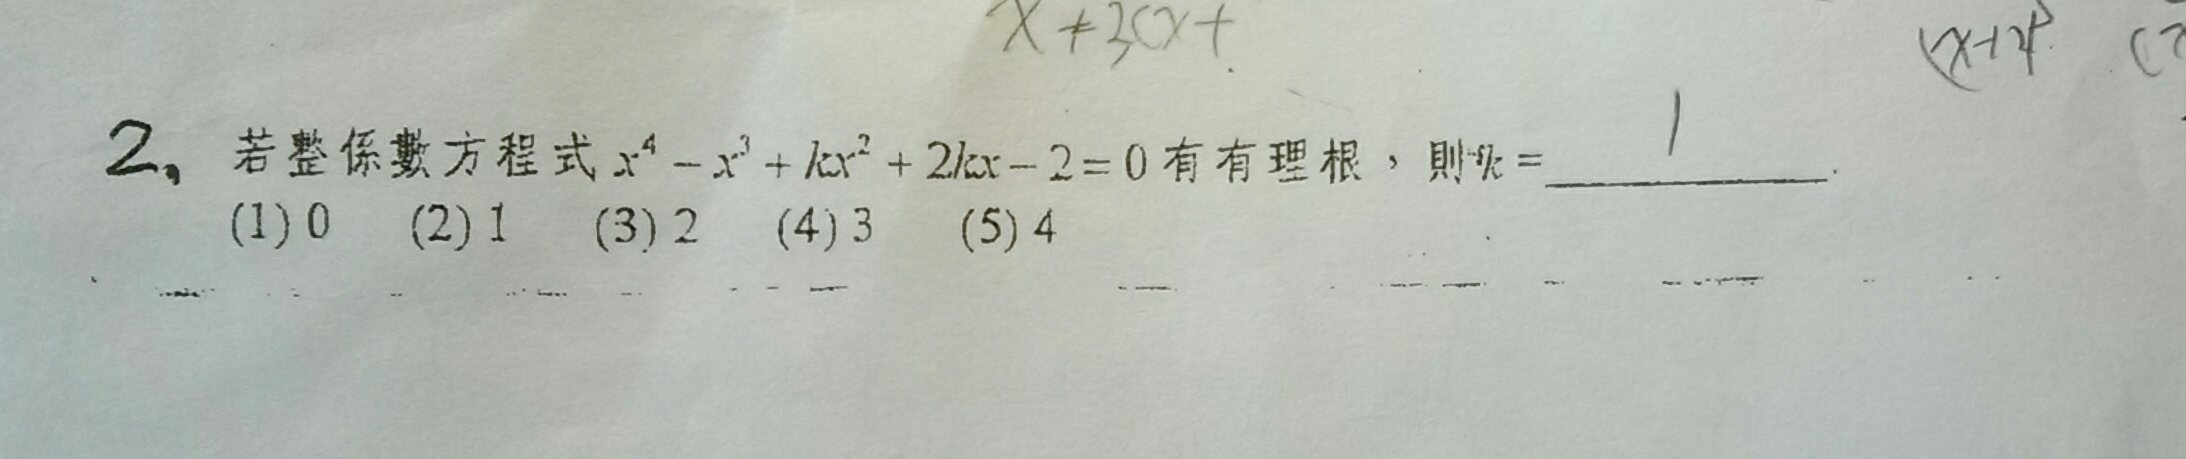 x+3(x+
(x+2)
2、若整係數方程式 x⁴ − x³ + kx² + 2kx − 2 = 0 有有理根，則k = 1
(1) 0 (2) 1 (3) 2 (4) 3 (5) 4